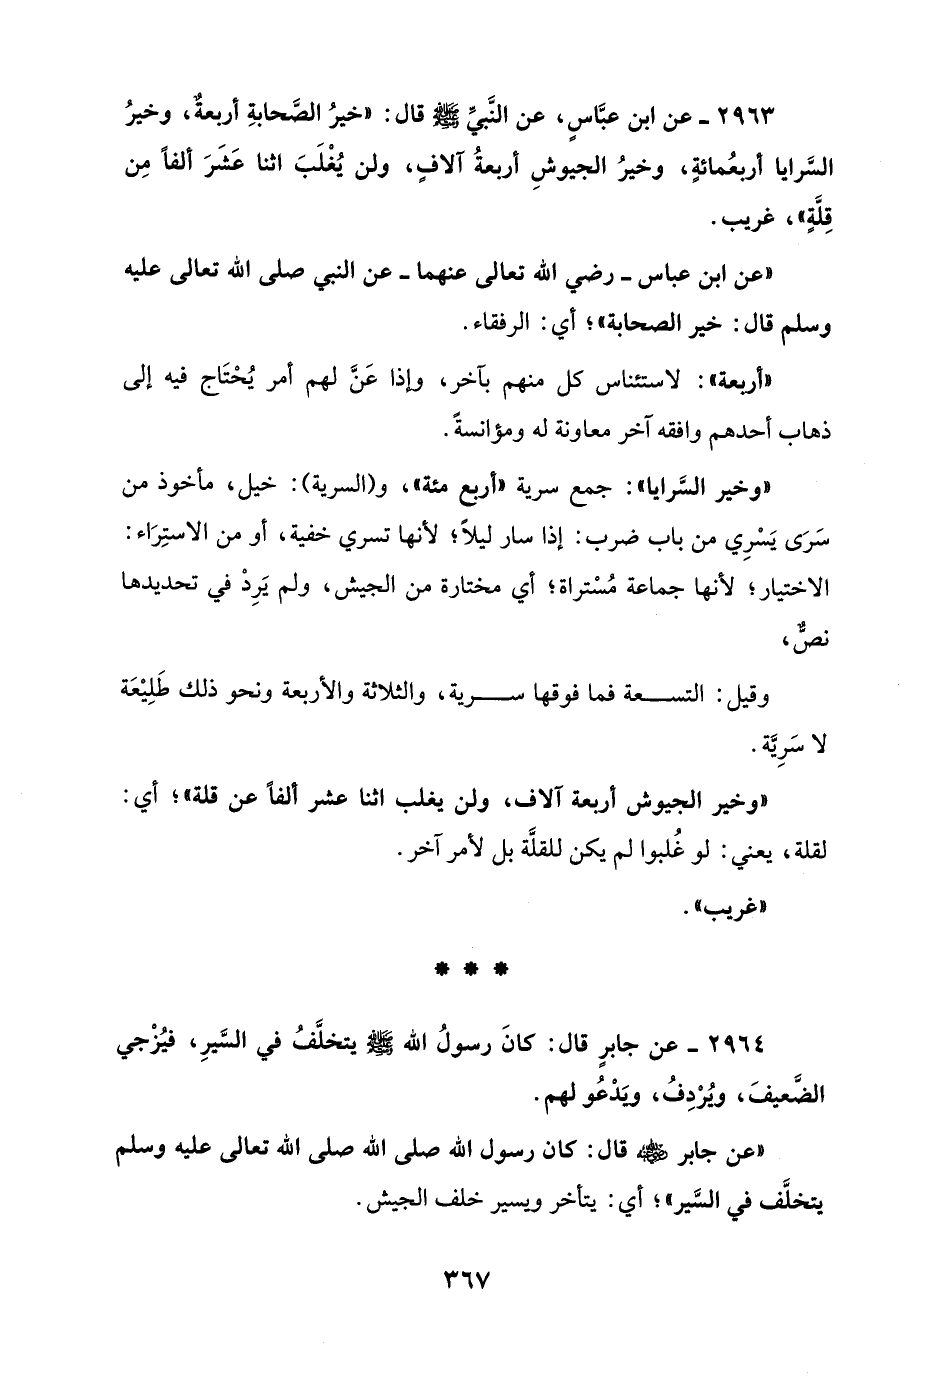 ٢٩٦٣ ـ عن ابن عبَّاسٍ، عن النَّبيِّ ﷺ قال: «خيرُ الصَّحابةِ أربعةٌ، وخيرُ
السَّرايا أربعُمائةٍ، وخيرُ الجيوشِ أربعةُ آلافٍ، ولن يُغْلَبَ اثنا عَشَرَ ألفاً مِن
قِلَّةٍ»، غريب.
«عن ابن عباس ـ رضي الله تعالى عنهما ـ عن النبي صلى الله تعالى عليه
وسلم قال: خير الصحابة»؛ أي: الرفقاء.
«أربعة»: لاستئناس كل منهم بآخر، وإذا عَنَّ لهم أمر يُحْتَاج فيه إلى
ذهاب أحدهم وافقه آخر معاونة له ومؤانسةً.
«وخير السَّرايا»: جمع سرية «أربع مئة»، و(السرية): خيل، مأخوذ من
سَرَى يَسْرِي من باب ضرب: إذا سار ليلاً؛ لأنها تسري خفية، أو من الاستِرَاء:
الاختيار؛ لأنها جماعة مُسْتراة؛ أي مختارة من الجيش، ولم يَرِدْ في تحديدها
نصٌّ،
وقيل: التســعة فما فوقها ســرية، والثلاثة والأربعة ونحو ذلك طَلِيْعَة
لا سَرِيَّة.
«وخير الجيوش أربعة آلاف، ولن يغلب اثنا عشر ألفاً عن قلة»؛ أي:
لقلة، يعني: لو غُلبوا لم يكن للقلَّة بل لأمر آخر.
«غريب».
* * *
٢٩٦٤ ـ عن جابرٍ قال: كانَ رسولُ الله ﷺ يتخلَّفُ في السَّيرِ، فيُزْجي
الضَّعيفَ، ويُرْدِفُ، ويَدْعُو لهم.
«عن جابر ﵁ قال: كان رسول الله صلى الله صلى الله تعالى عليه وسلم
يتخلَّف في السَّير»؛ أي: يتأخر ويسير خلف الجيش.
٣٦٧